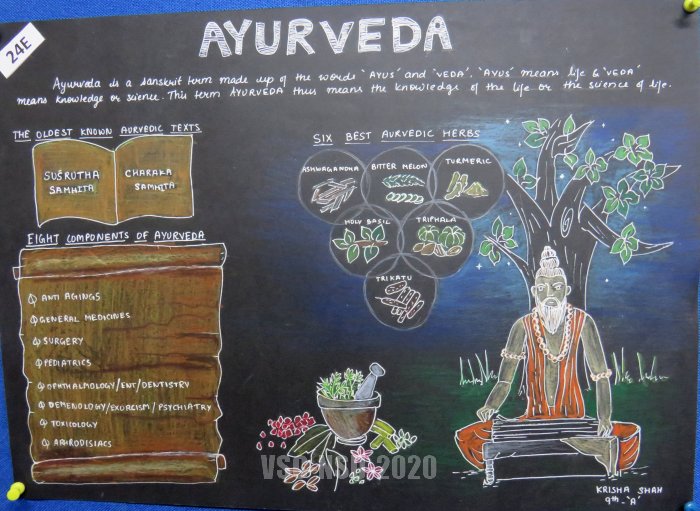 24E
AYURVEDA
Ayurveda is a sanskrit term made up of the words 'AYUS' and 'VEDA'. 'AYUS' means life & 'VEDA'
means knowledge or science. This term AYURVEDA thus means the knowledge of the life or the science of life.
THE OLDEST KNOWN AURVEDIC TEXTS
SUŚRUTHA
SAMHITA
CHARAKA
SAMHITA
EIGHT COMPONENTS OF AYURVEDA
ANTI AGINGS
GENERAL MEDICINES
SURGERY
PEDIATRICS
OPHTHALMOLOGY/ENT/DENTISTRY
DEMENOLOGY/EXORCISM/PSYCHIATRY
TOXICOLOGY
APHRODISIACS
SIX BEST AURVEDIC HERBS
ASHWAGANDHA
BITTER MELON
TURMERIC
HOLY BASIL
TRIPHALA
TRIKATU
KRISHA SHAH
9th-'A'